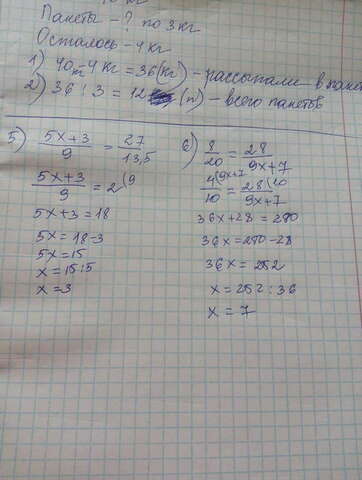 Пакеты - ? по 3 кг
Осталось - 4 кг
1) 40 - 4 кг = 36 (кг) - рассыпали в паке
2) 36 : 3 = 12 (п) - всего пакетов
5) (5x+3)/9 = 27/13,5
(5x+3)/9 = 2 (9
5x+3 = 18
5x = 18-3
5x = 15
x = 15:5
x = 3
6) 8/20 = 28/(9x+7)
4(9x+7/10 = 28(10/9x+7
36x+28 = 280
36x = 280-28
36x = 252
x = 252 : 36
x = 7